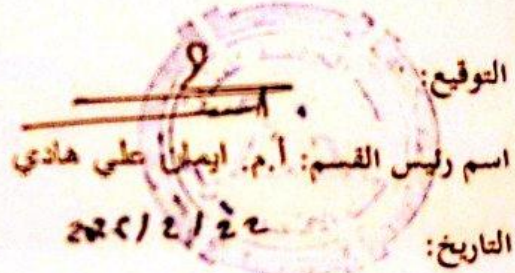 التوقيع:
اسم رئيس القسم: أ.م. ايمان علي هادي
التاريخ: